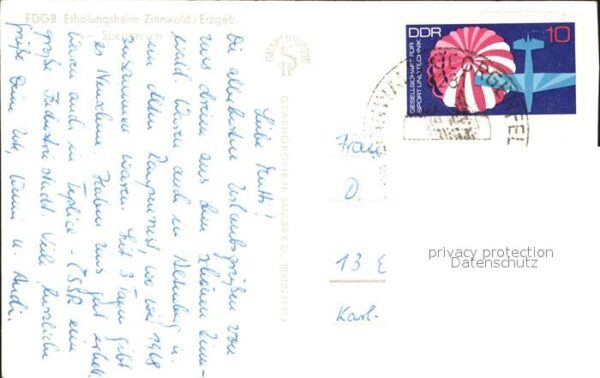 FDGB-Erholungsheim Zinnwald / Erzgeb.
Speiseraum
GRAPHOKOPIE H. SANDER K.G., BERLIN N 113
Liebe Mutti!
Die allerbesten Urlaubsgrüßen von
uns dreien aus dem schönen Zinn-
wald. Waren auch in Altenberg u.
im alten wo wir 1968
zusammen waren. Seit 3 Tagen gibt
es Neuschnee. Haben uns gut erholt.
Waren auch in Teplice - ČSSR eine
große Industriestadt. Viele herzliche
Grüße Deine Uta, u. Andi.
DDR 10
GESELLSCHAFT FÜR
SPORT UND TECHNIK
Frau
D.
13 E
Karl-
privacy protection
Datenschutz